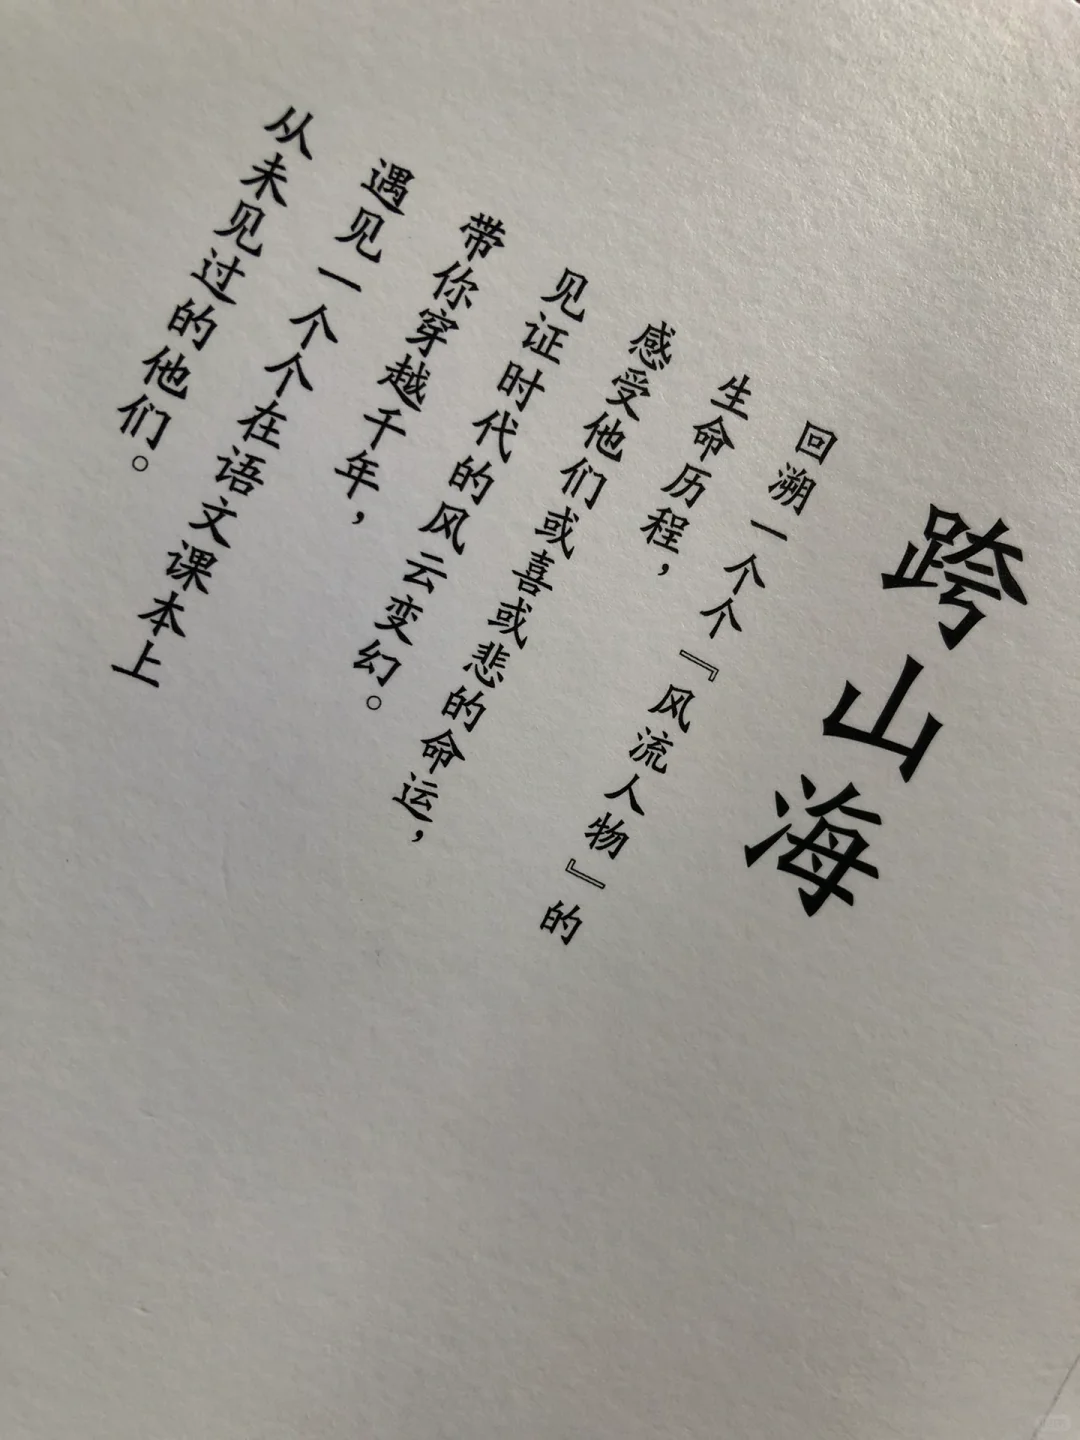 跨山海
回溯一个个『风流人物』的
生命历程，
感受他们或喜或悲的命运，
见证时代的风云变幻。
带你穿越千年，
遇见一个个在语文课本上
从未见过的他们。